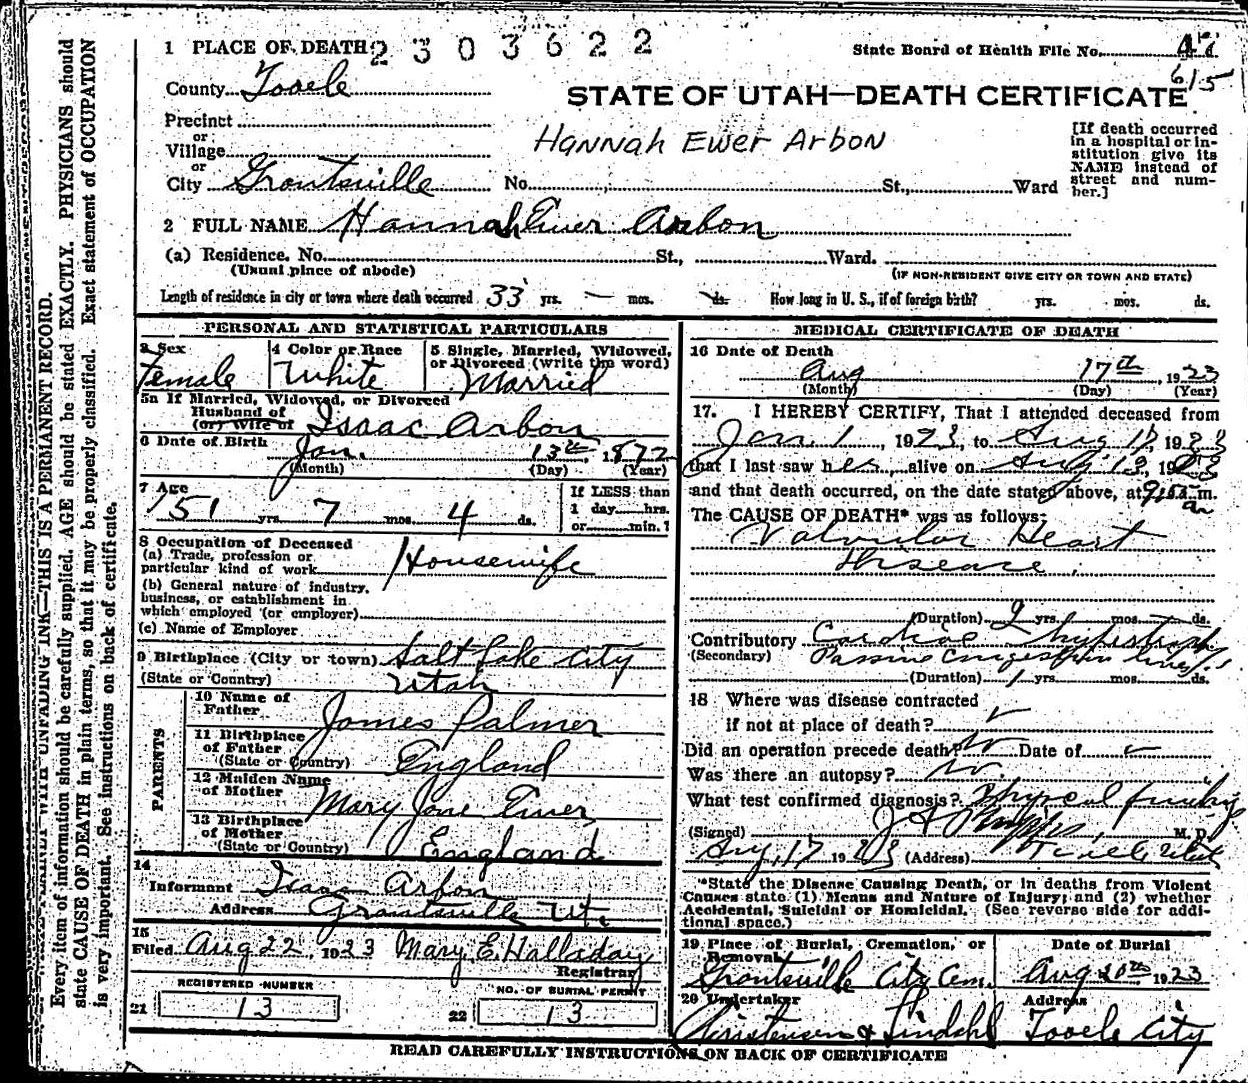 1 PLACE OF DEATH 2303622
State Board of Health File No. 47
615
County Tooele
STATE OF UTAH—DEATH CERTIFICATE
Precinct
or
Village
or
City Grantsville No. St., Ward
Hannah Ewer Arbon
[If death occurred
in a hospital or in-
stitution give its
NAME instead of
street and num-
ber.]
2 FULL NAME Hannah Ewer Arbon
(a) Residence. No. St., Ward.
(Usual place of abode)
(IF NON-RESIDENT GIVE CITY OR TOWN AND STATE)
Length of residence in city or town where death occurred 33 yrs. — mos. ds. How long in U. S., if of foreign birth? yrs. mos. ds.
PERSONAL AND STATISTICAL PARTICULARS
3 Sex
Female
4 Color or Race
White
5 Single, Married, Widowed,
or Divorced (write the word)
Married
5a If Married, Widowed, or Divorced
Husband of
(or) Wife of Isaac Arbon
6 Date of Birth
Jan. 13th, 1872
(Month) (Day) (Year)
7 Age
51 yrs. 7 mos. 4 ds.
If LESS than
1 day hrs.
or min.?
8 Occupation of Deceased
(a) Trade, profession or
particular kind of work Housewife
(b) General nature of industry,
business, or establishment in
which employed (or employer)
(c) Name of Employer
9 Birthplace (City or town) Salt Lake City
(State or Country) Utah
PARENTS
10 Name of
Father James Palmer
11 Birthplace
of Father
(State or Country) England
12 Maiden Name
of Mother Mary Jane Ewer
13 Birthplace
of Mother
(State or Country) England
14
Informant Isaac Arbon
Address Grantsville Ut.
15
Filed Aug 22, 1923 Mary E. Halladay
Registrar
REGISTERED NUMBER
21 13
NO. OF BURIAL PERMIT
22 13
MEDICAL CERTIFICATE OF DEATH
16 Date of Death
Aug 17th, 1923
(Month) (Day) (Year)
17. I HEREBY CERTIFY, That I attended deceased from
Jan. 1, 1923, to Aug 17, 1923
that I last saw her alive on Aug 13, 1923
and that death occurred, on the date stated above, at m.
The CAUSE OF DEATH* was as follows:
Valvular Heart
Disease.
(Duration) 2 yrs. mos. ds.
Contributory Cardiac hypertrophy
(Secondary) Passive congestion
(Duration) 1 yrs. mos. ds.
18 Where was disease contracted
if not at place of death?
Did an operation precede death? No Date of
Was there an autopsy? No.
What test confirmed diagnosis? Physical findings
(Signed) M. D.
Aug, 17 1923 (Address) Tooele Utah
*State the Disease Causing Death, or in deaths from Violent
Causes state (1) Means and Nature of Injury; and (2) whether
Accidental, Suicidal or Homicidal. (See reverse side for addi-
tional space.)
19 Place of Burial, Cremation, or
Removal
Grantsville City Cem.
Date of Burial
Aug 20th 1923
20 Undertaker
Christensen & Lindahl
Address
Tooele City
READ CAREFULLY INSTRUCTIONS ON BACK OF CERTIFICATE
WITH UNFADING INK—THIS IS A PERMANENT RECORD.
Every item of information should be carefully supplied. AGE should be stated EXACTLY. PHYSICIANS should
state CAUSE OF DEATH in plain terms, so that it may be properly classified. Exact statement of OCCUPATION
is very important. See instructions on back of certificate.